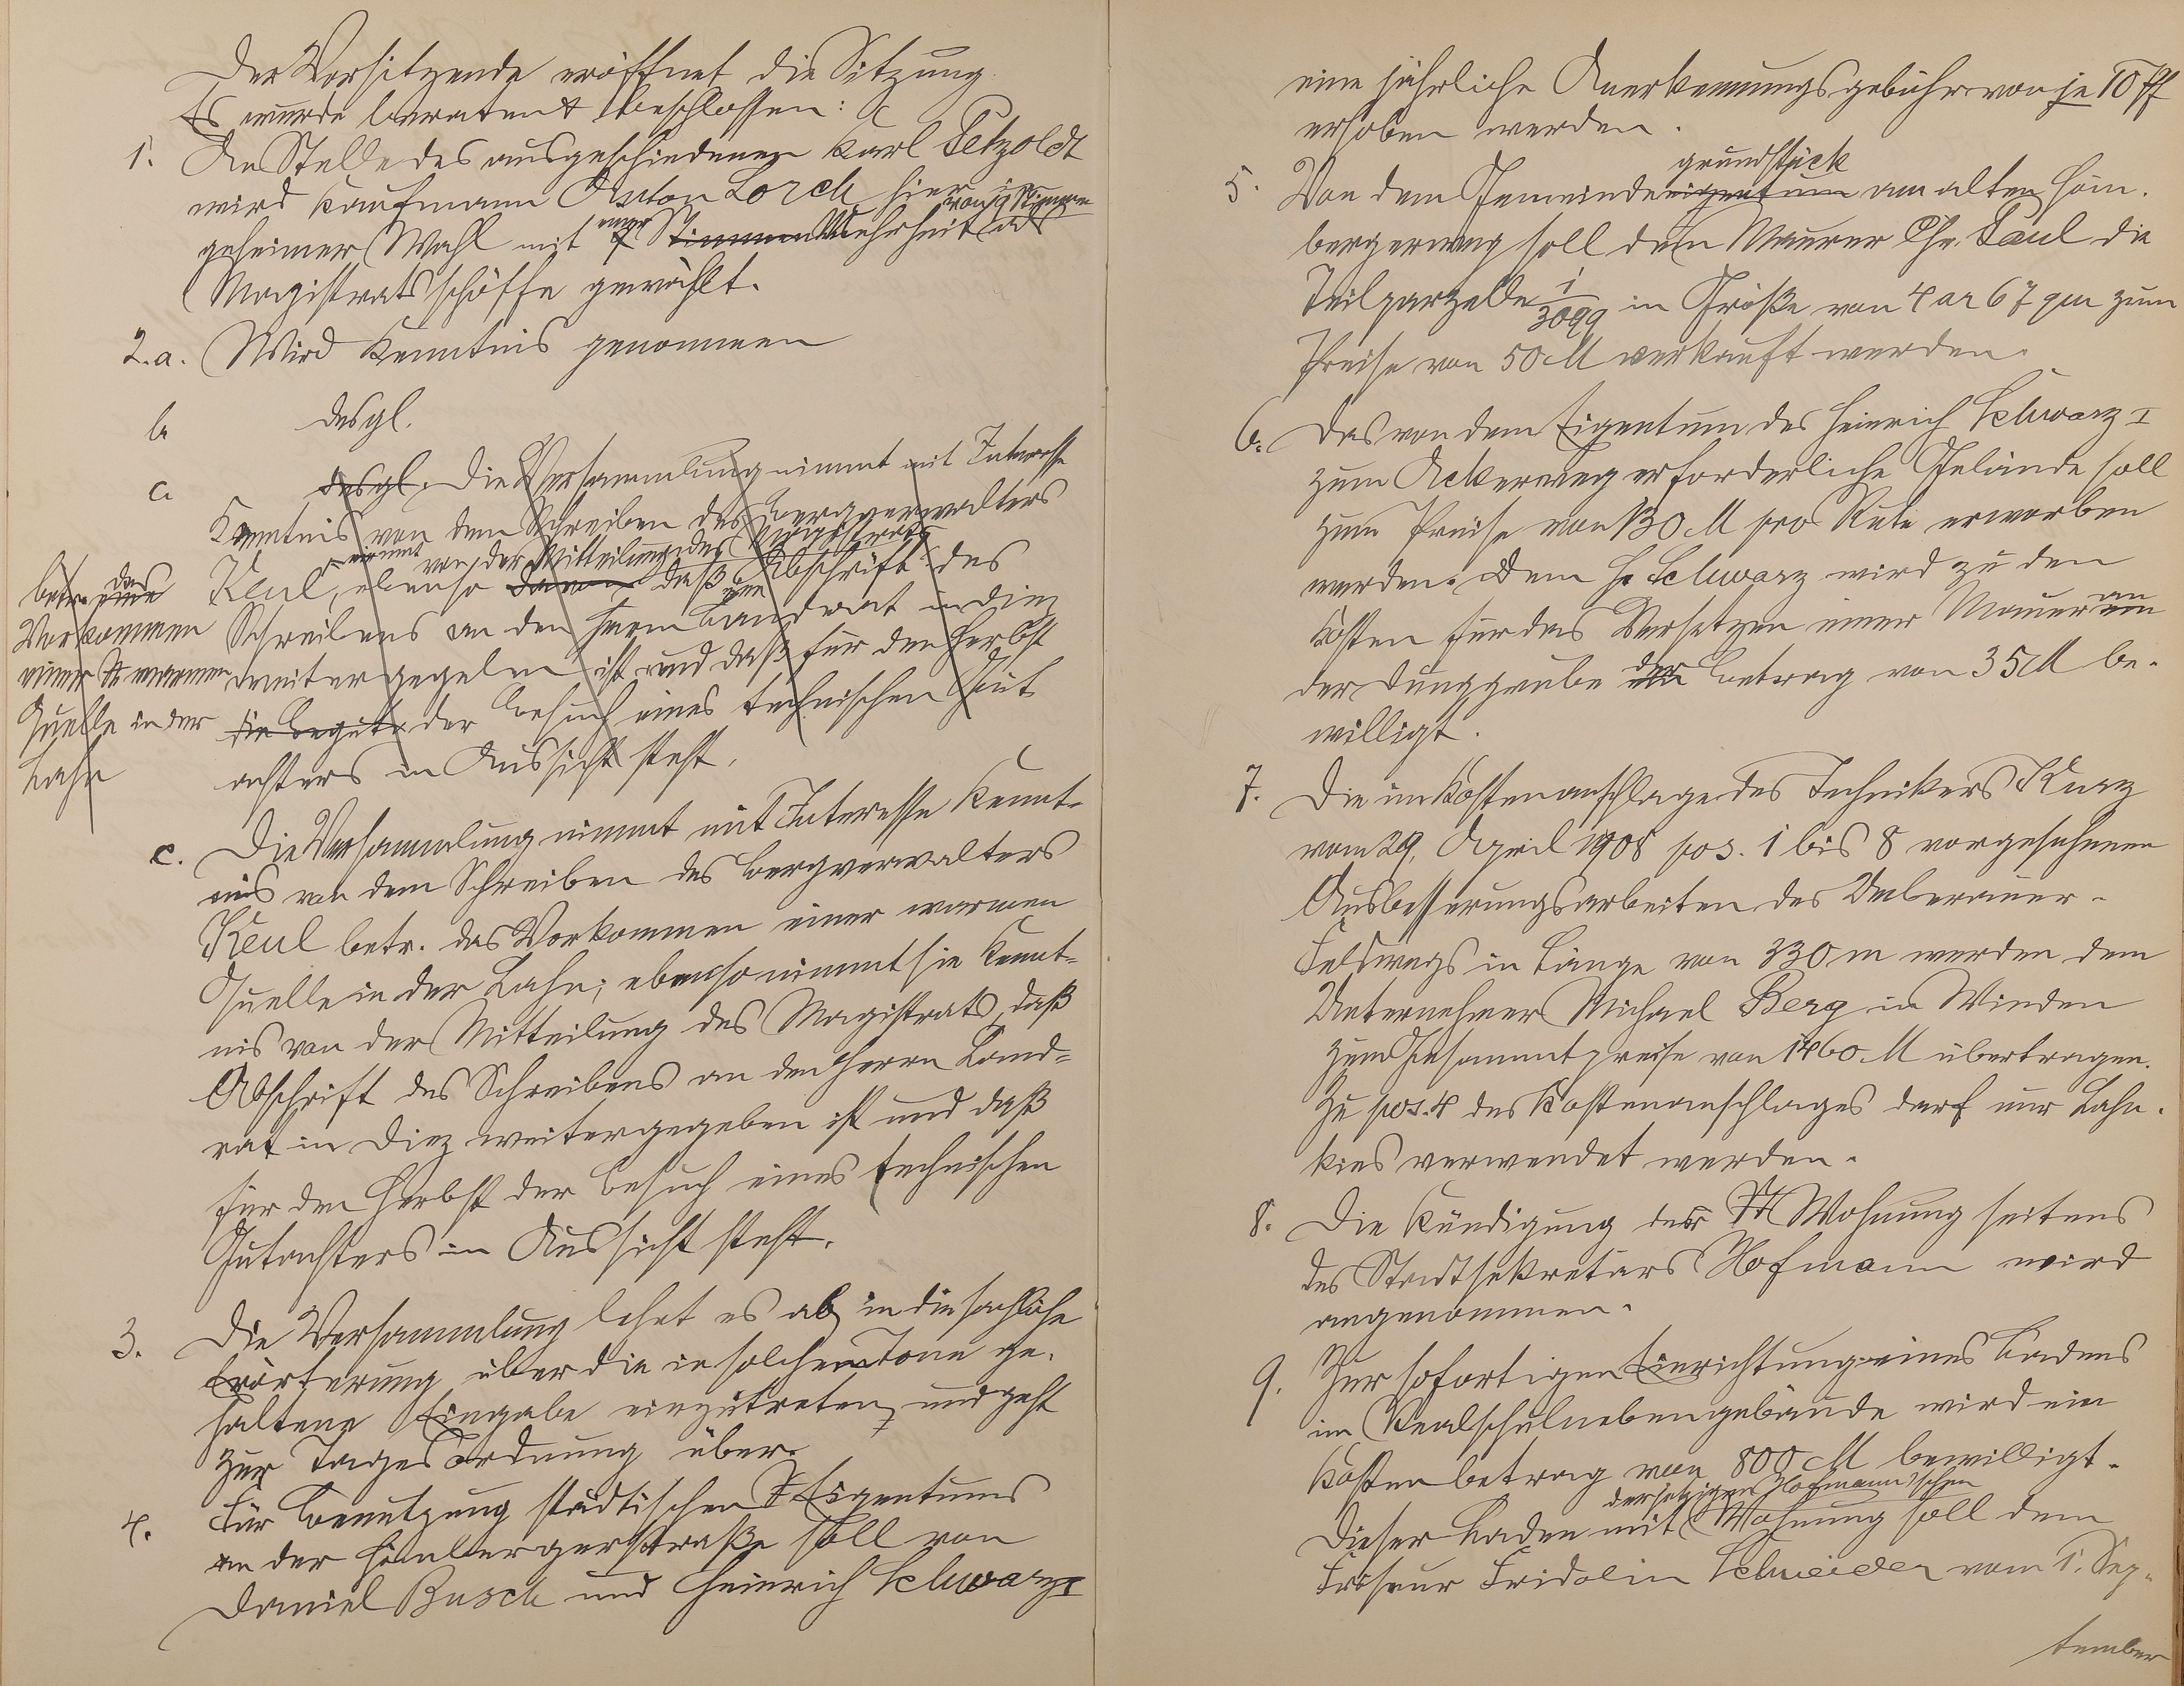 Der Vorsitzende eröffnet die Sitzung.
Es wurde beraten & beschlossen:
1. An Stelle des ausgeschiedenen Karl Petzoldt
wird Kaufmann Anton Lorch hier in
geheimer Wahl mit einer Stimmen Mehrheit von 9 Stimmen als
Magistratsschöffe gewählt.
2.a. Wird Kenntnis genommen
b desgl.
c desgl. Die Versammlung nimmt mit Interesse
Kenntnis von dem Schreiben des Bergverwalters
nimmt von der Mitteilung des Magistrats
Keul, ebenso davon daß Abschrift des
Schreibens an den Herrn Landrat in Diez
weitergegeben ist und daß für den Herbst
die Begut der Besuch eines technischen Gut
achters in Aussicht steht.
betr. das
Vorkommen
einer warmen
Quelle in der
Lahn
c. Die Versammlung nimmt mit Interesse Kennt-
nis von dem Schreiben des Bergverwalters
Keul betr. das Vorkommen einer warmen
Quelle in der Lahn; ebenso nimmt sie Kennt-
nis von der Mitteilung des Magistrats, daß
Abschrift des Schreibens an den Herrn Land-
rat in Diez weitergegeben ist und daß
für den Herbst der Besuch eines technischen
Gutachters in Aussicht steht.
3. Die Versammlung lehnt es ab, in die sachliche
Erörterung über die in solchem Tone ge-
haltene Eingabe einzutreten, und geht
zur Tagesordnung über.
4. Für Benutzung städtischen Eigentums
an der Hömbergerstraße soll von
Daniel Busch und Heinrich Schwarz I
eine jährliche Anerkennungsgebühr von je 10 Pf
erhoben werden.
grundstück
5. Von dem Gemeindeeigentum am alten Höm-
bergerweg soll dem Maurer Chr. Paul die
Teilparzelle 1/3099 in Größe von 4 ar 67 qm zum
Preise von 50 M verkauft werden.
6. Das von dem Eigentum des Heinrich Schwarz I
zum Ackerweg erforderliche Gelände soll
zum Preise von 130 M pro Rute erworben
werden. Dem H. Schwarz wird zu den
Kosten für das Versetzen einer Mauer an
der Dunggrube der Betrag von 35 M be-
willigt.
7. Die im Kostenanschlage des Technikers Kurz
vom 29. April 1908 pos. 1 bis 8 vorgesehenen
Ausbesserungsarbeiten des
Feldwegs in Länge von 330 m werden dem
Unternehmer Michael Berg in Winden
zum Gesammtpreise von 1460 M übertragen.
Zu pos. 4 des Kostenanschlages darf nur Lahn-
kies verwendet werden.
8. Die Kündigung der Wohnung seitens
des Stadtsekretärs Hofmann wird
angenommen.
9. Zur sofortigen Einrichtung eines Ladens
im Realschulnebengebäude wird ein
Kostenbetrag von 800 M bewilligt.
der jetzigen Hofmann'schen
Dieser Laden mit Wohnung soll dem
Friseur Fridolin Schneider vom 1. Sep-
tember